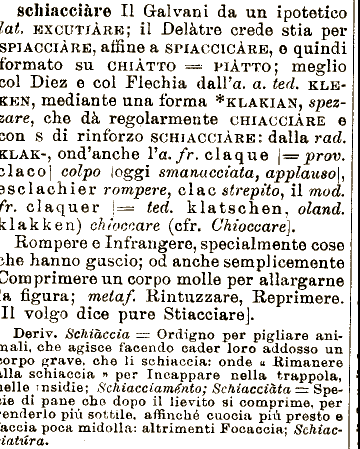 schiacciàre Il Galvani da un ipotetico
lat. EXCUTIÀRE; il Delàtre crede stia per
SPIACCIÀRE, affine a SPIACCICÀRE, e quindi
formato su CHIÀTTO = PIÀTTO; meglio
col Diez e col Flechia dall'a. a. ted. KLE-
KEN, mediante una forma *KLAKIAN, spez-
zare, che dà regolarmente CHIACCIÀRE e
con S di rinforzo SCHIACCIÀRE: dalla rad.
KLAK-, ond'anche l'a. fr. claque [= prov.
claco] colpo [oggi smanacciata, applauso],
esclachier rompere, clac strepito, il mod.
fr. claquer [= ted. klatschen, oland.
klakken) chioccare (cfr. Chioccare].
Rompere e Infrangere, specialmente cose
che hanno guscio; od anche semplicemente
Comprimere un corpo molle per allargarne
la figura; metaf. Rintuzzare, Reprimere.
[Il volgo dice pure Stiacciare].
Deriv. Schiàccia = Ordigno per pigliare ani-
mali, che agisce facendo cader loro addosso un
corpo grave, che li schiaccia: onde « Rimanere
alla schiaccia » per Incappare nella trappola,
nelle insidie; Schiacciaménto; Schiacciàta = Spe-
cie di pane che dopo il lievito si comprime, per
renderlo più sottile, affinché cuocia più presto e
faccia poca midolla: altrimenti Focaccia; Schiac-
ciatúra.